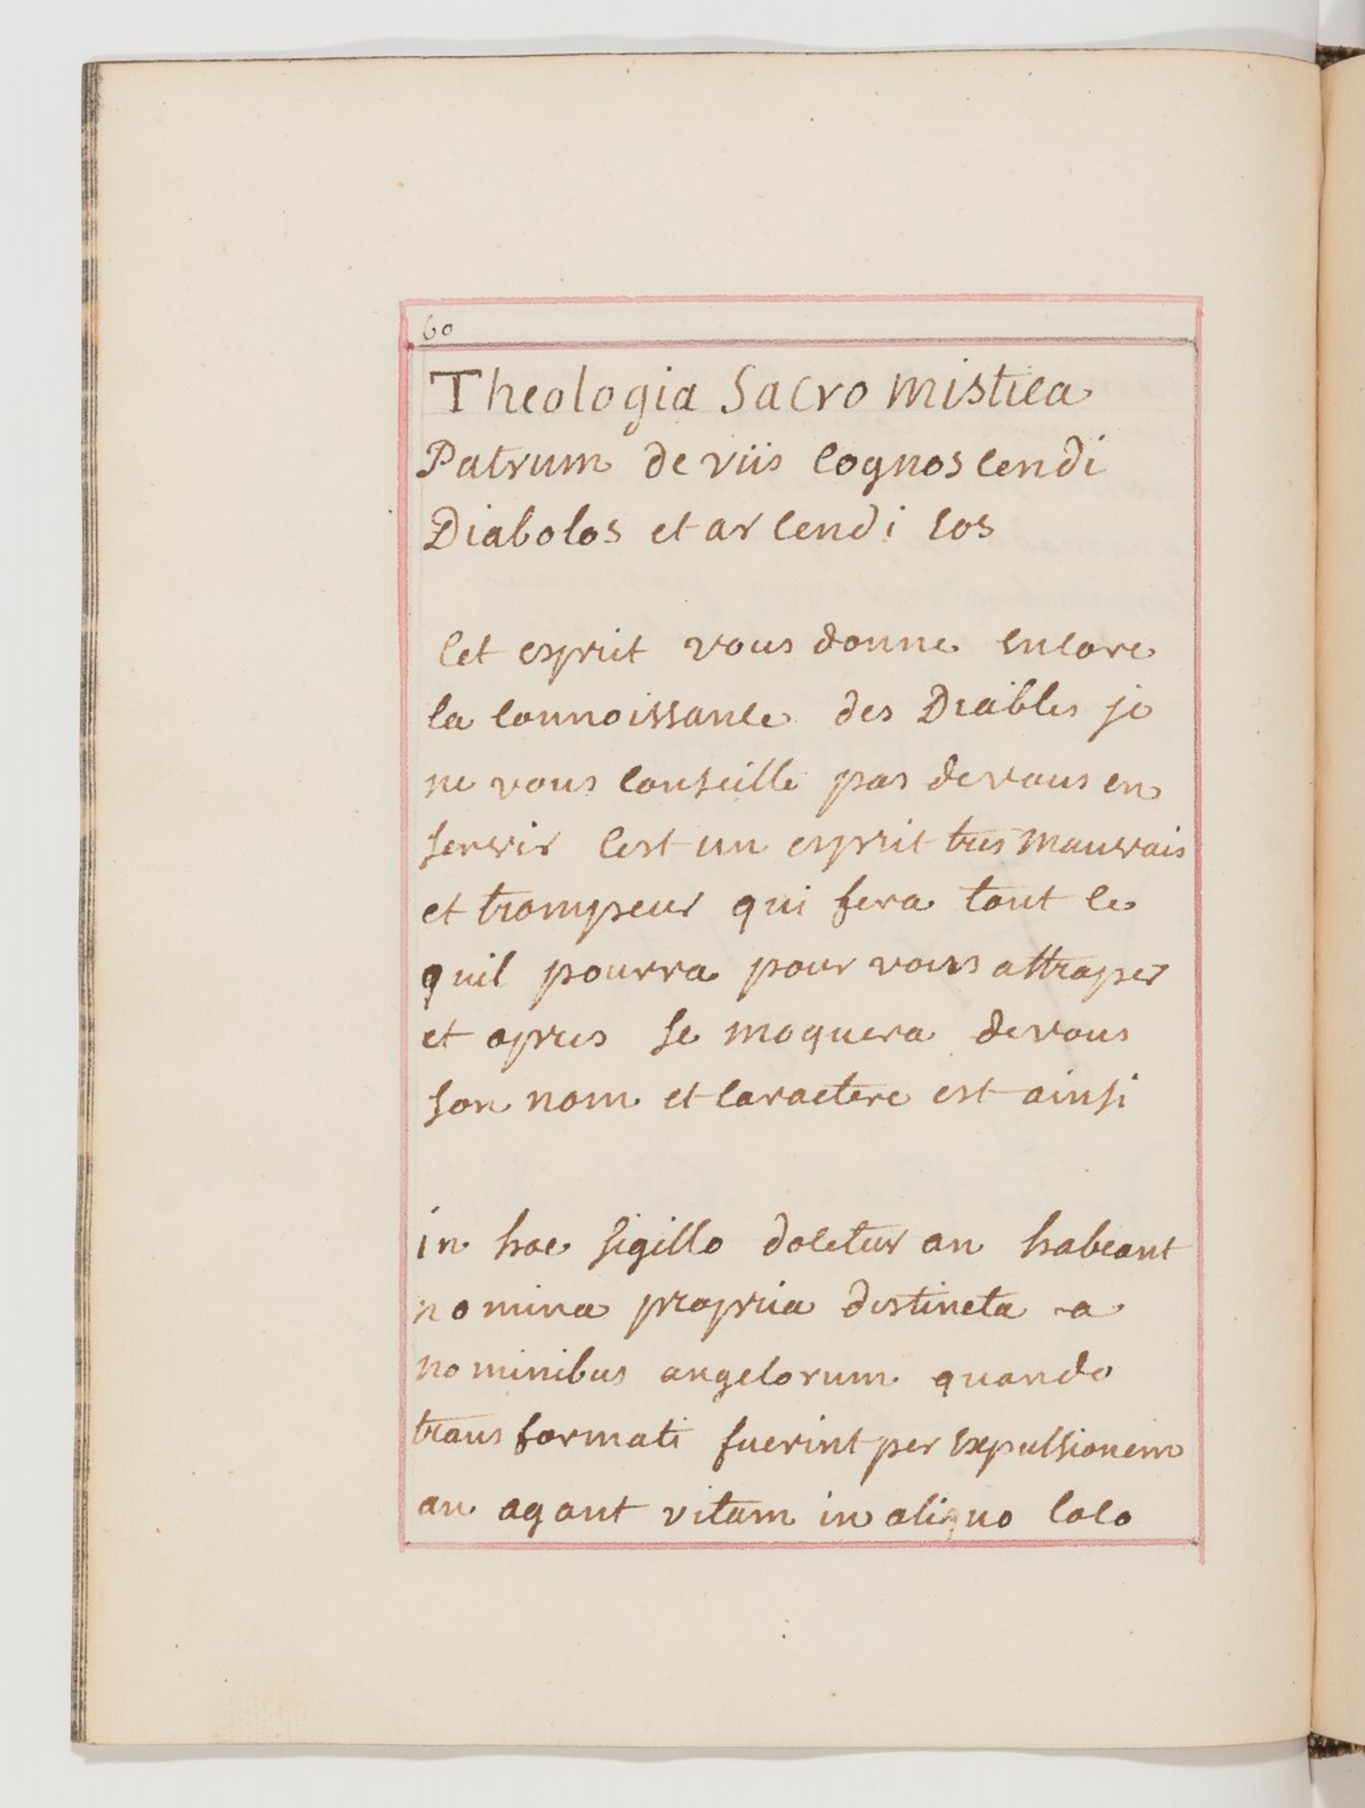 60
Theologia Sacro mistica
Patrum de viis cognoscendi
Diabolos et arcendi eos
Cet esprit vous donne encore
la connoissance des Diables je
ne vous conseille pas de vous en
servir c'est un esprit tres mauvais
et trompeur qui fera tout ce
quil pourra pour vous attraper
et apres se moquera de vous
son nom et caractere est ainsi
in hoc sigillo docetur an habeant
nomina propria distincta a
nominibus angelorum quando
transformati fuerint per expulsionem
an agant vitam in aliquo loco